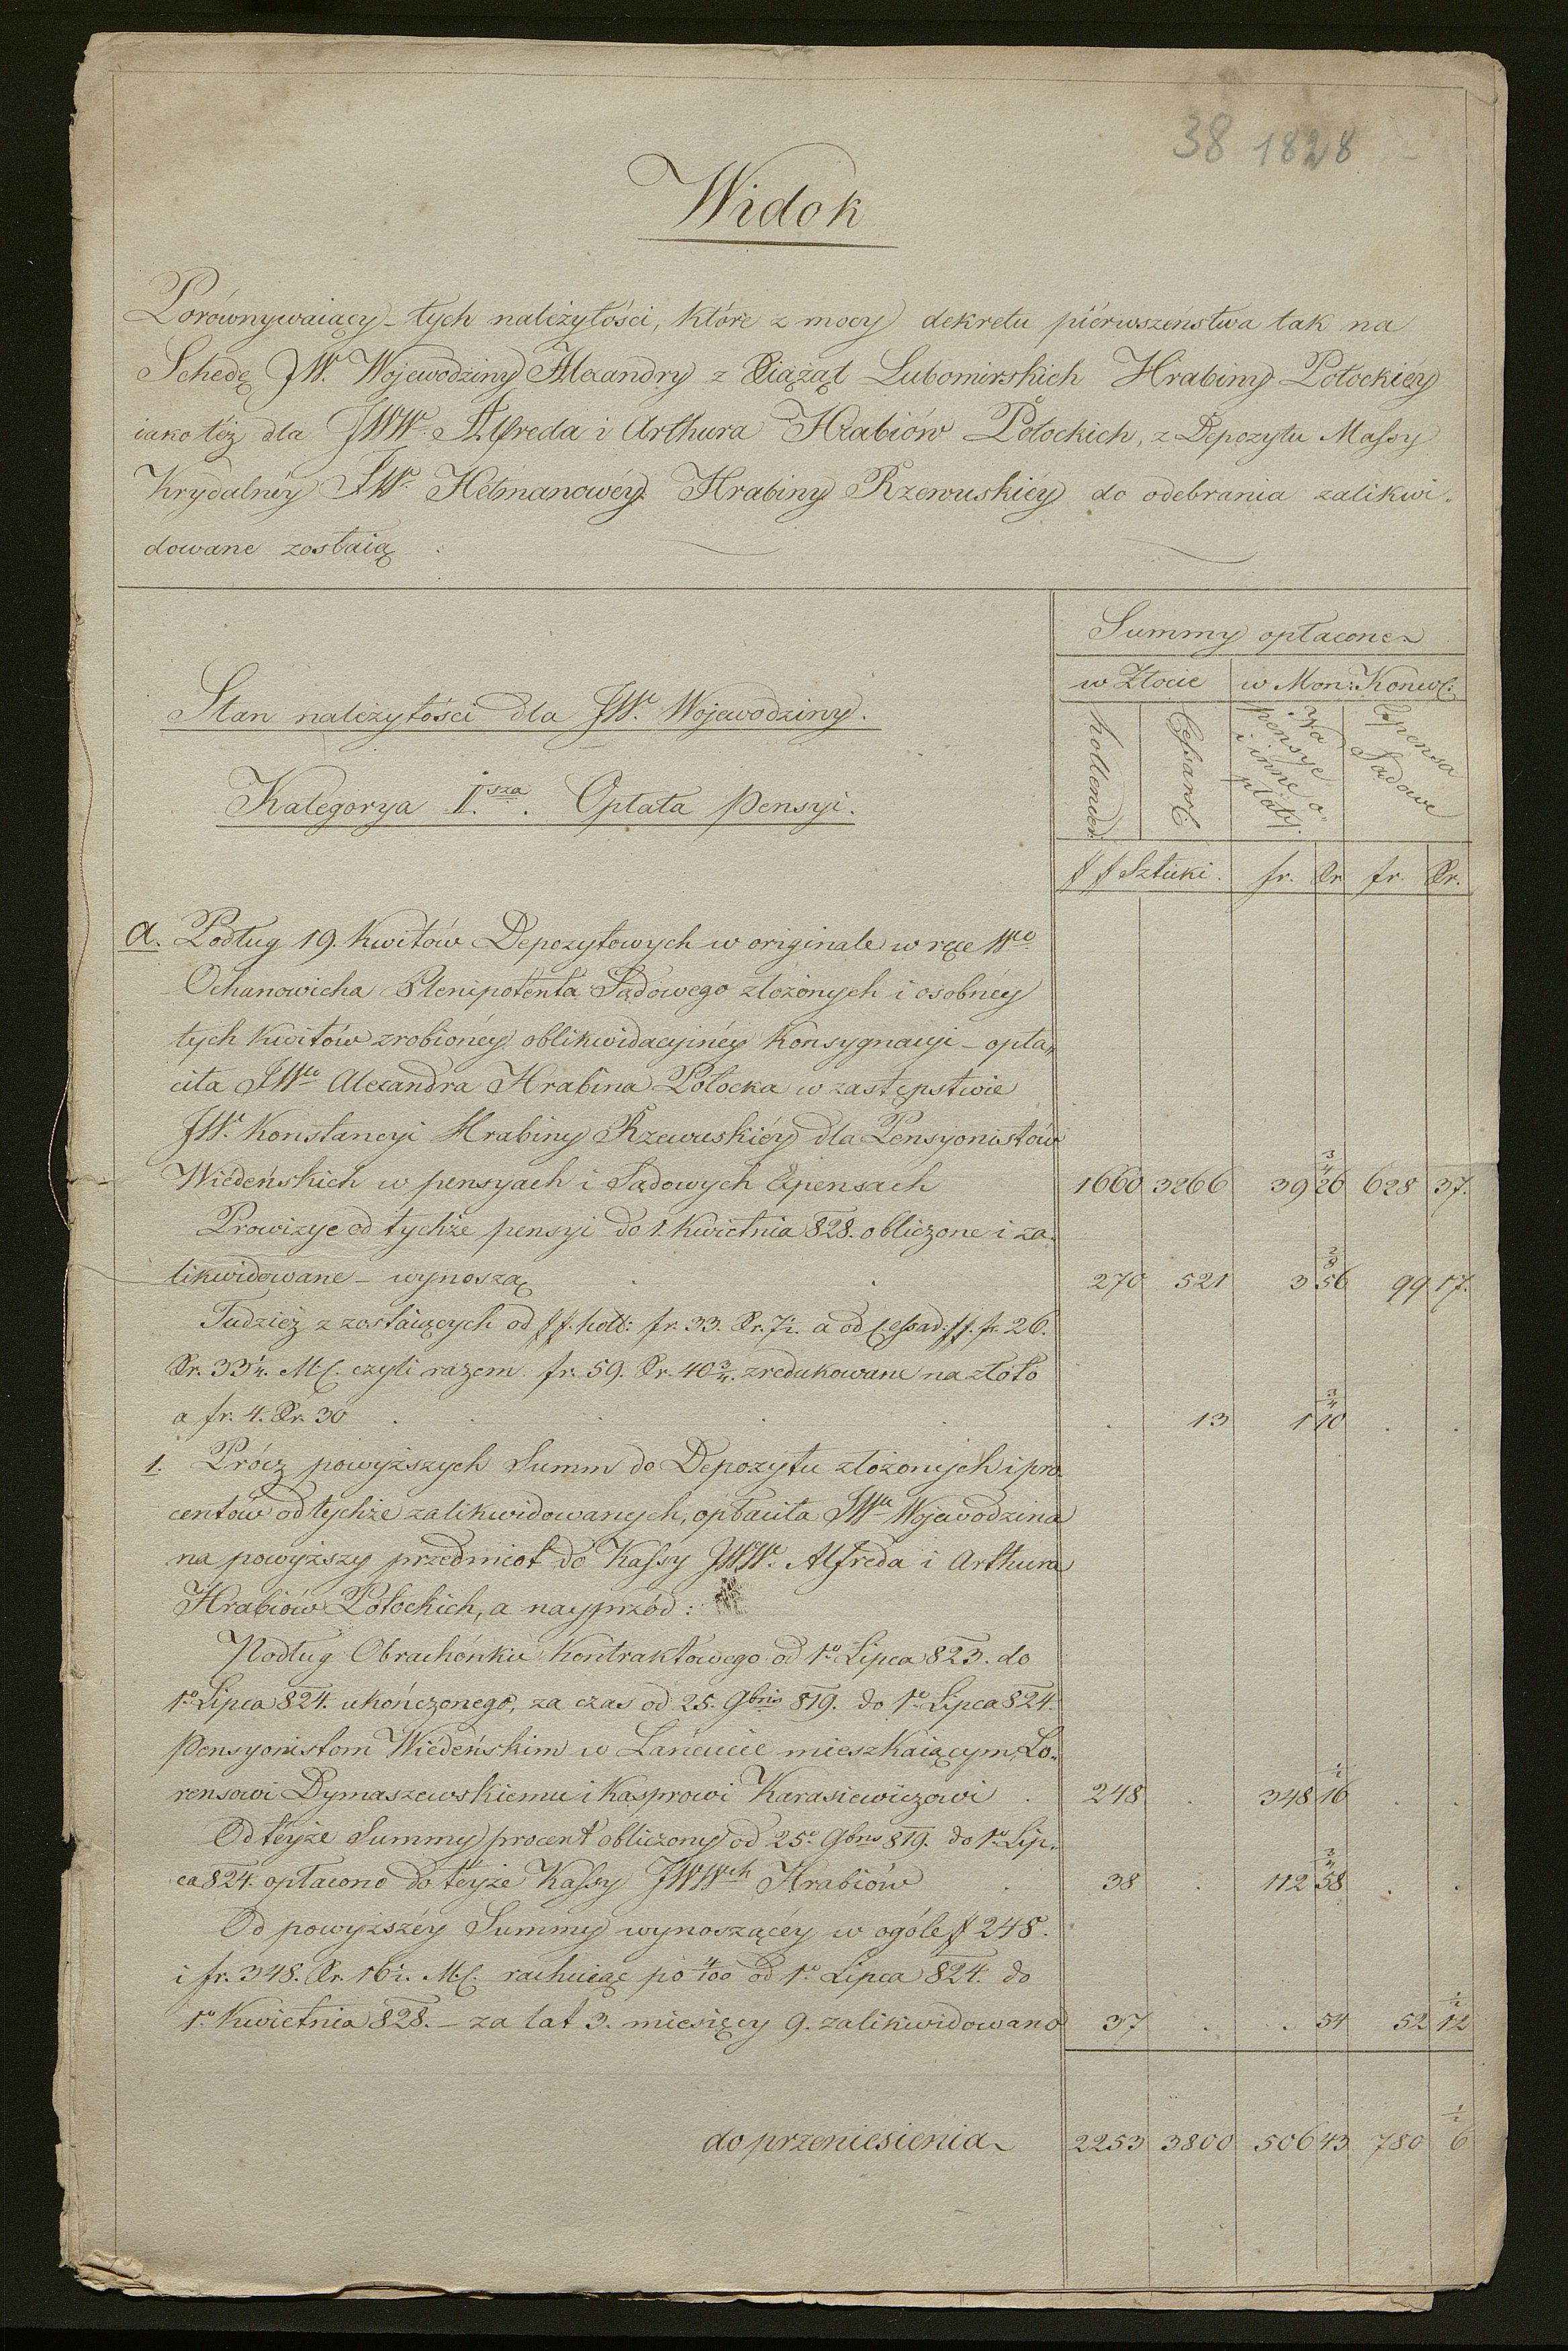 38 1828
Widok
Porównywaiący tych należytości, które z mocy dekretu piérwszeństwa tak na
Schedę JW. Wojewodziny Alexandry z Xiążąt Lubomirskich Hrabiny Potockiéy
iako też dla JWW. Alfreda i Arthura Hrabiów Potockich, z Depozytu Massy
Krydalnéy JW. Hetmanowéy Hrabiny Rzewuskiéy do odebrania zalikwi-
dowane zostaią :
Summy opłacone
w Złocie w Mon: Konw:
Stan należytości dla JW. Wojewodziny.
hollend. Na pensye i inne opłaty. Expensa Sądowe
Kategorya I.sza. Opłata Pensyi.
## Sztuki. fr. Xr. fr. Xr.
a. Podług 19. Kwitów Depozytowych w originale w ręce Wo
Ochanowicha Plenipotenta Sądowego złożonych i osobnéy
tych Kwitów zrobionéy oblikwidacyinéy Konsygnacyi – opła-
ciła JWa Alexandra Hrabina Potocka w zastępstwie
JW. Konstancyi Hrabiny Rzewuskiéy dla Pensyonistów
Wiédeńskich w pensyach i Sądowych Expensach 1660 3266 39 26 3/4 628 37.
Prowizye od tychże pensyi do 1. Kwietnia 828. obliczone i za-
likwidowane – wynoszą 270 521 3 56 2/8 99 17.
Tudzież z zostaiących od ##. holl: fr. 33. Xr. 7½. a od Cessad: ##. fr. 26.
Xr. 33¼. M.C. czyli razem fr. 59. Xr. 40¾. zredukowane na złoto
a fr. 4. Xr. 30 . . . . . 13 1 10 3/4 . .
1. Prócz powyższych Summ do Depozytu złożonych i pro-
centów od tychże zalikwidowanych, opłaciła JWa Wojewodzina
na powyższy przedmiot do Kassy JWW. Alfreda i Arthura
Hrabiów Potockich, a nayprzód :
Podług Obrachónku Kontraktowego od 1o Lipca 823. do
1o Lipca 824. ukończonego, za czas od 25. 9bris 819. do 1o Lipca 824.
Pensyonistom Wiédeńskim w Łańcucie mieszkaiącym, Lo-
rensowi Dymaszewskiemu i Kasprowi Karasiewiczowi . 248 . 348 16 1/2 . .
Od teyże Summy procent obliczony od 25o 9bris 819. do 1o Lip-
ca 824. opłacono do téyże Kassy JWWch Hrabiów . 38 . 112 58 3/4 . .
Od powyższéy Summy wynoszącéy w ogóle # 248.
i fr. 348. Xr. 16½. M.C. rachuiąc po 4/100 od 1o Lipca 824. do
1o Kwietnia 828. – za lat 3. miesięcy 9. zalikwidowano 37 . . 54 52 12 1/2
do przeniesienia 2253 3800 506 43 780 6 1/2